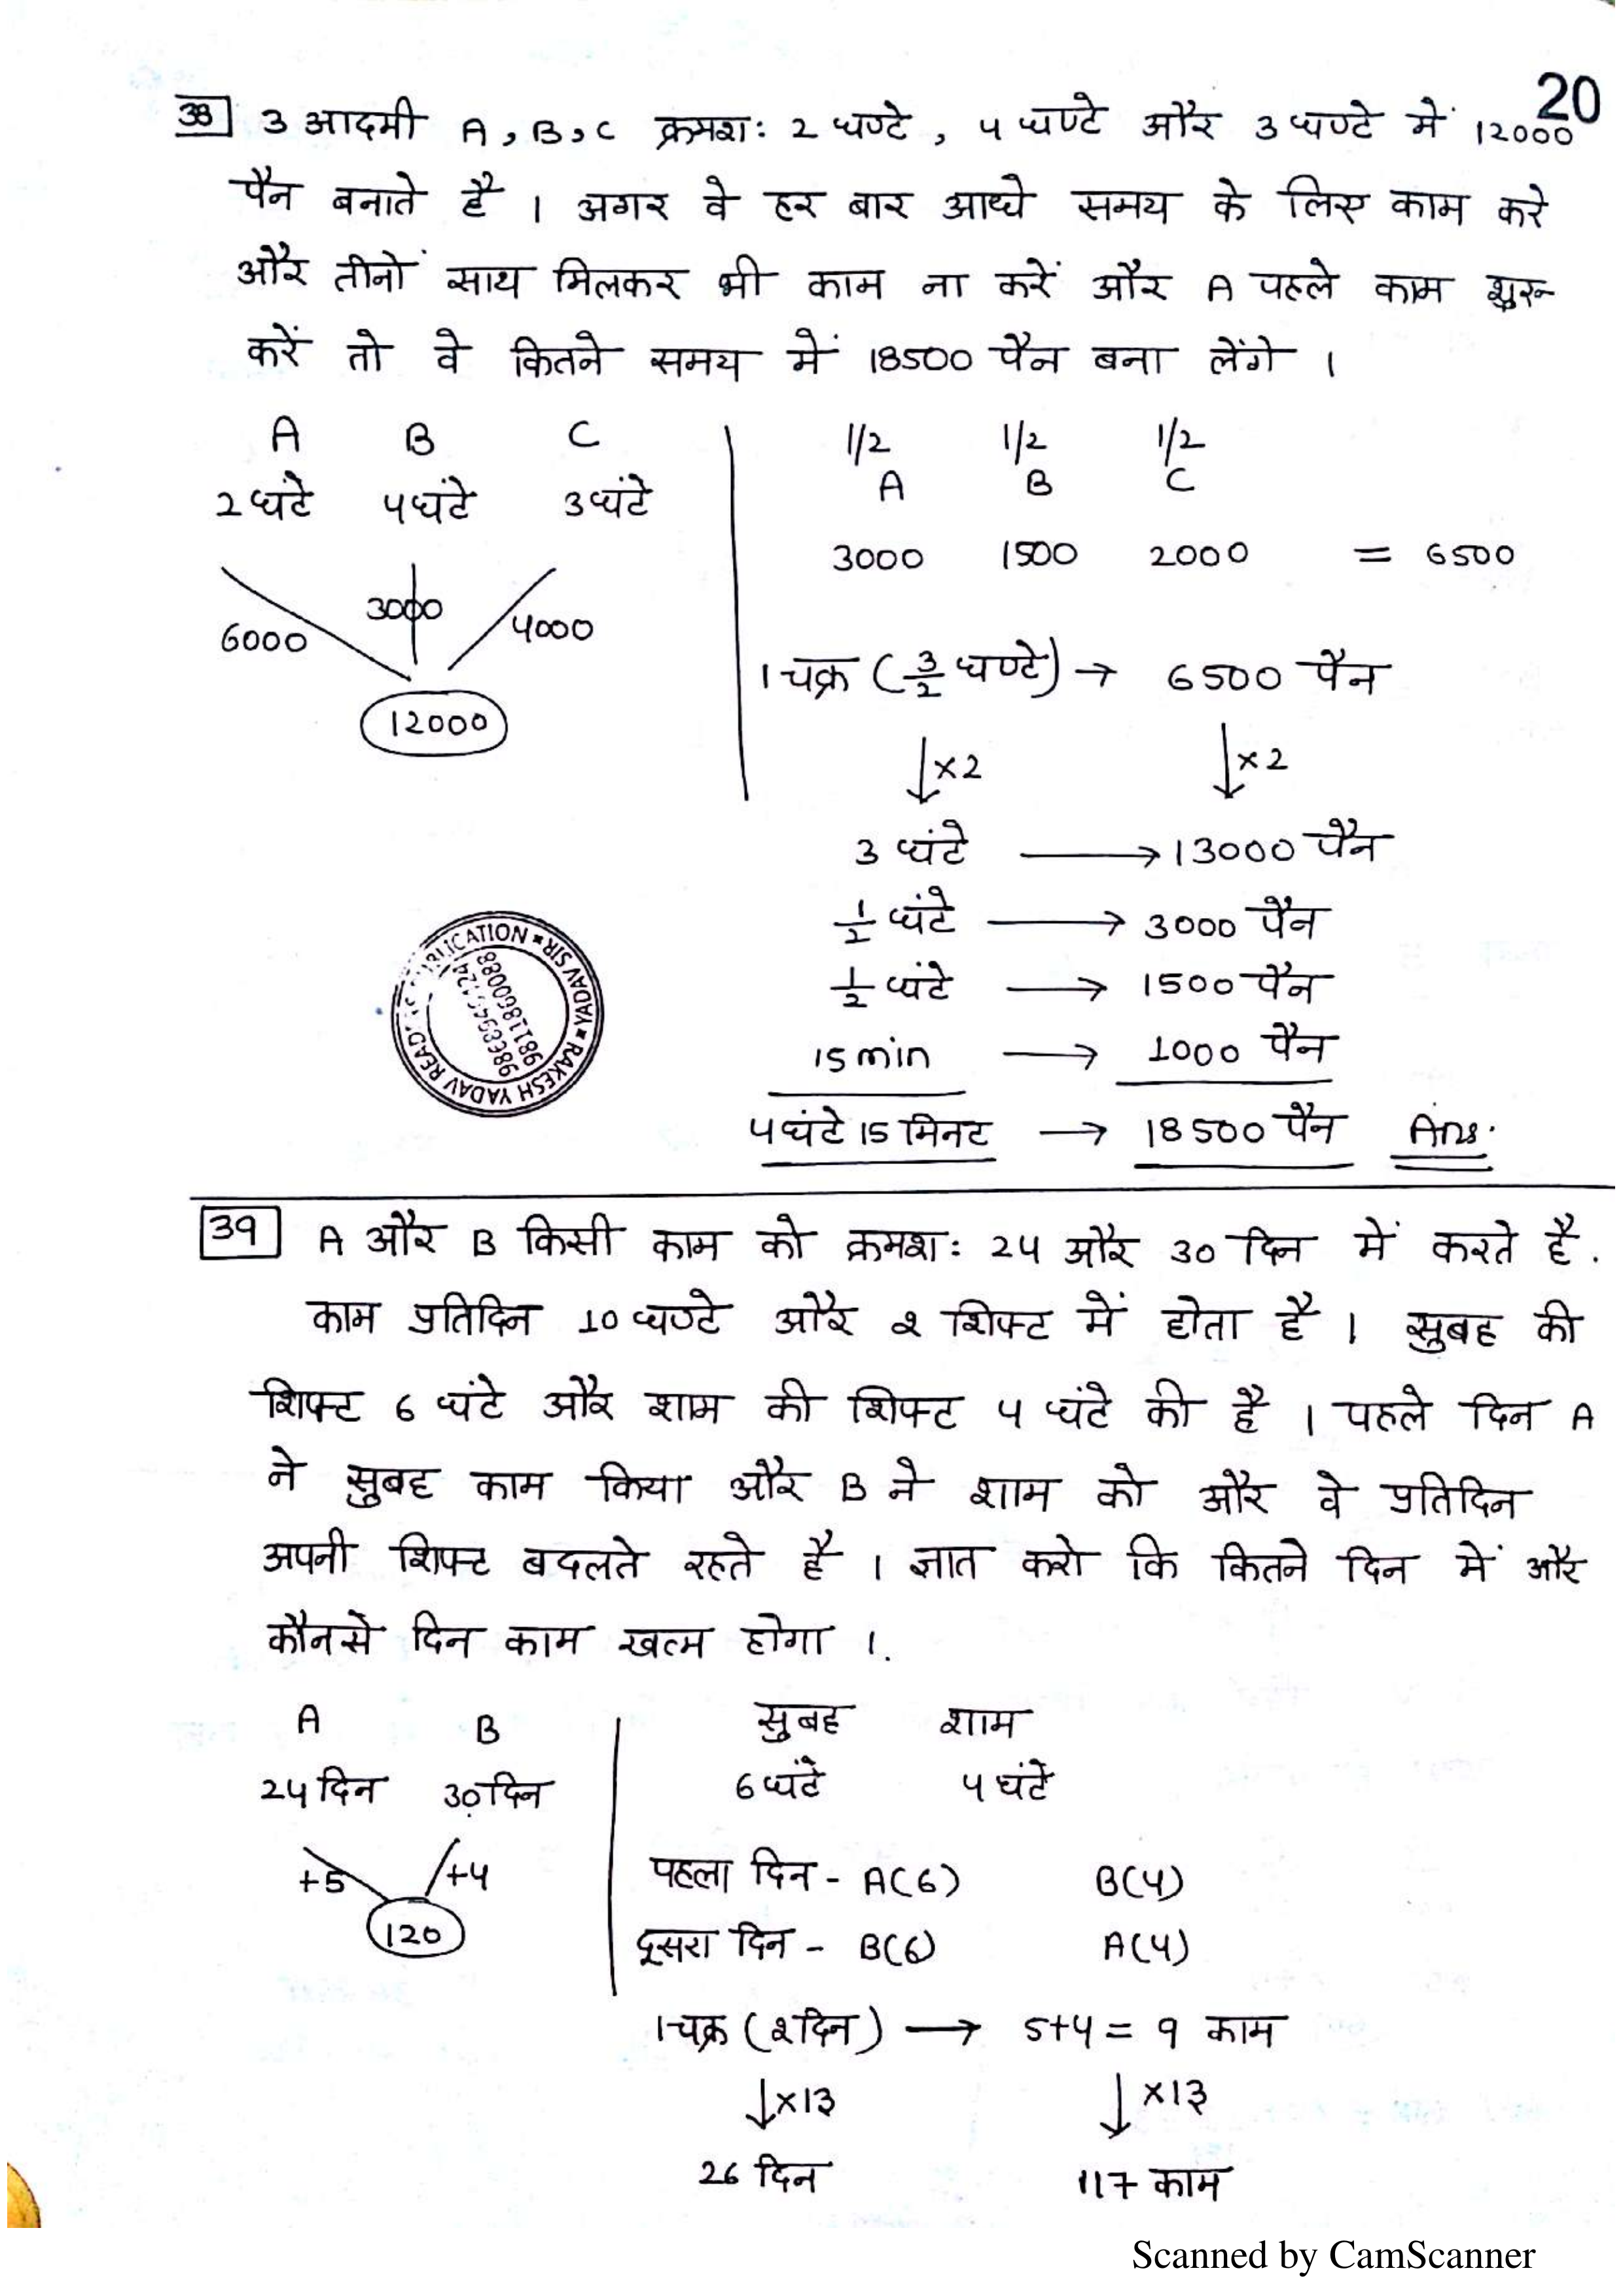 20
38 3 आदमी A, B, C क्रमश: 2 घण्टे, 4 घण्टे और 3 घण्टे में 12000
पैन बनाते है । अगर वे हर बार आधे समय के लिए काम करे
और तीनों साथ मिलकर भी काम ना करें और A पहले काम शुरू
करें तो वे कितने समय में 18500 पैन बना लेंगे ।
A B C
2 घंटे 4 घंटे 3 घंटे
6000 3000 4000
12000
1/2 1/2 1/2
A B C
3000 1500 2000 = 6500
1 चक्र (3/2 घण्टे) → 6500 पैन
↓×2 ↓×2
3 घंटे → 13000 पैन
1/2 घंटे → 3000 पैन
1/2 घंटे → 1500 पैन
15 min → 1000 पैन
4 घंटे 15 मिनट → 18500 पैन Ans.
RAKESH YADAV READERS PUBLICATION * YADAV SIR *
9811860088
39 A और B किसी काम को क्रमश: 24 और 30 दिन में करते है.
काम प्रतिदिन 10 घण्टे और २ शिफ्ट में होता है । सुबह की
शिफ्ट 6 घंटे और शाम की शिफ्ट 4 घंटे की है । पहले दिन A
ने सुबह काम किया और B ने शाम को और वे प्रतिदिन
अपनी शिफ्ट बदलते रहते है । ज्ञात करो कि कितने दिन में और
कौनसे दिन काम खत्म होगा ।.
A B
24 दिन 30 दिन
+5 +4
120
सुबह शाम
6 घंटे 4 घंटे
पहला दिन - A(6) B(4)
दूसरा दिन - B(6) A(4)
1 चक्र (२ दिन) → 5+4 = 9 काम
↓×13 ↓×13
26 दिन 117 काम
Scanned by CamScanner